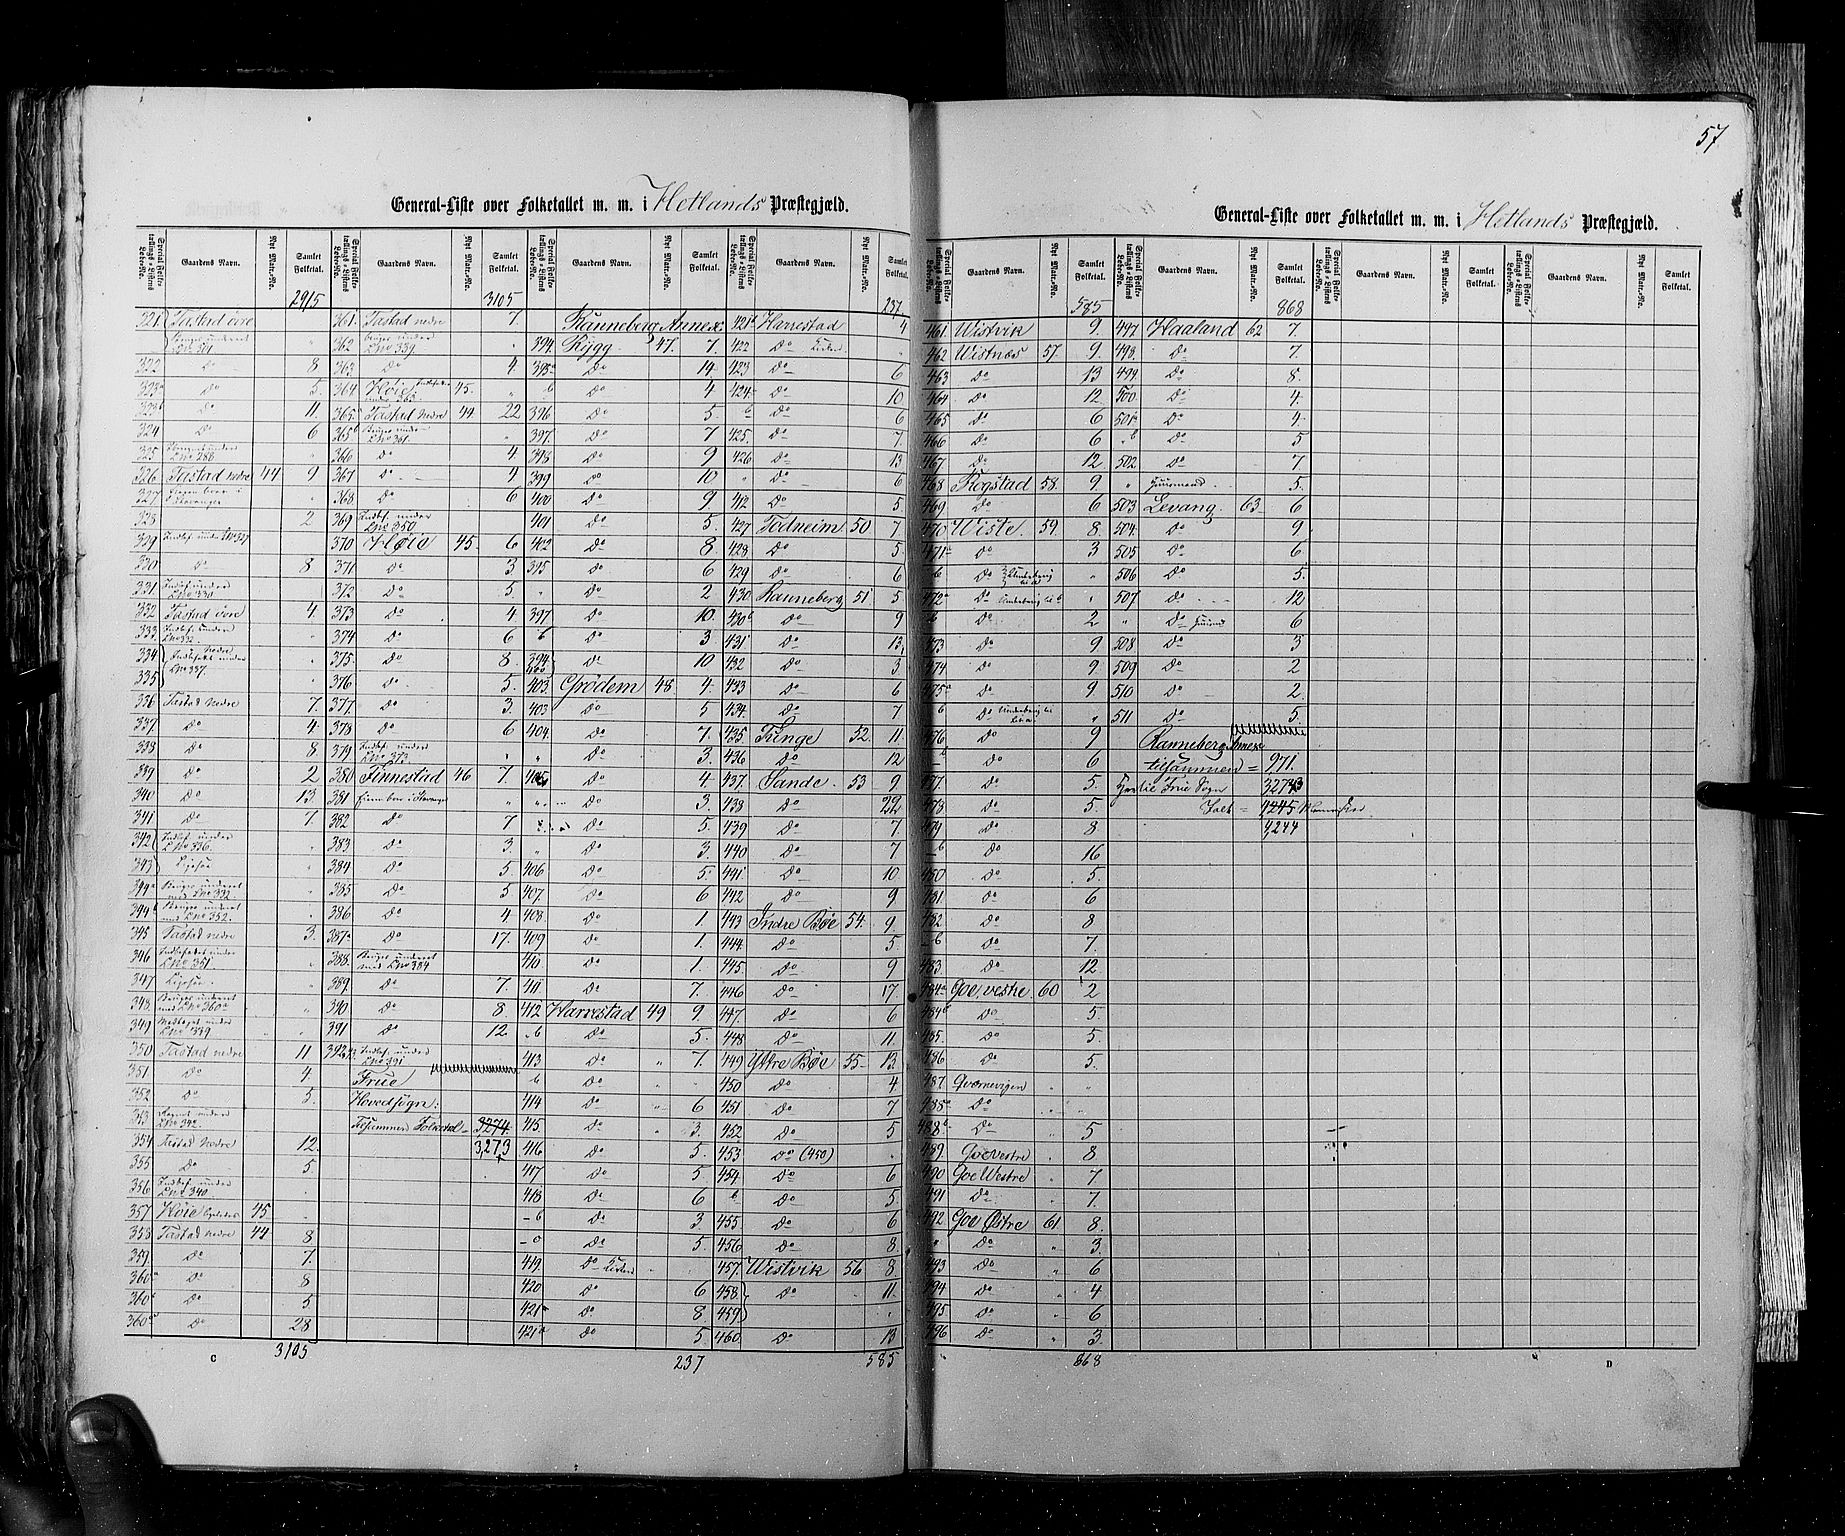 57
General-Liste over Folketallet m. m. i Hetlands Præstegjæld.
Special Folketællings-Listens Løbe-No. Gaardens Navn. Nyt Matr.-No. Samlet Folketal.
2915
321. Tastad övre
322 Do 8
323a Do 5.
323b Do 11.
324 Do 6
325
326 Tastad nedre 44 9
327
328 2
329
330 Do 8
331.
332 Tastad övre 4.
333.
334
335
336 Tastad nedre 7.
337. Do 4.
338 Do 8
339 Do 2
340 Do 13.
341 Do 7.
342
343
345 Tastad nedre 3.
346
347
348.
349
350 Tastad nedre 11
351 Do 4.
352 Do 5.
354 Tastad nedre 12.
355 Do 5.
356
357 Høie 45
358 Tastad nedre 44 8
359. Do 7.
360a Do 8
360b Do 5
360c Do 28
3105
C
Special Folketællings-Listens Løbe-No. Gaardens Navn. Nyt Matr.-No. Samlet Folketal.
3105
361. Tastad nedre 7.
362
363 Do 4
364 Høie 45.
365a Tastad nedre 44. 22
365b
366 Do 4
367 Do 4
368 Do 6
369
370 Høie 45. 6
371 Do 3
372 Do 5.
373 Do 4
374 Do 6
375. Do 8.
376 Do 5.
377 Do 3.
378 Do 6
379
380 Finnestad 46 7.
381
382 Do 7
383. Do 3.
384 Do 5
385 Do 5
386 Do 4
387a Do 17.
388.
389. Do 7.
390 Do 8.
391 Do 12
Frue
Hovedsogn:
Tilsammen Folketal 3274.
3,273
Special Folketællings-Listens Løbe-No. Gaardens Navn. Nyt Matr.-No. Samlet Folketal.
Ranneberg Annex
394. Rygg 47. 7.
395a Do 14
b Do 4
396 Do 5.
397. Do 7
398 Do 9
399 Do 10
400 Do 9
401 Do 5.
402 Do 8.
395 Do 6
" Do 2
397 Do 10.
b Do 3
Do 10
403. Grödem 48. 4.
403 Do 5
404. Do 7.
" Do 3.
Do 4.
Do 3.
Do 5.
" Do 3.
406 Do 5.
407. Do 6
408. Do 1
409 Do 1.
410 Do 1.
411 Do 7.
412 Harrestad 49 9.
b Do 5.
413 Do 7.
b Do
414 Do 6
415. Do 3.
416 Do 5.
417 Do 5
418 Do 6
b Do 3
Do 5.
419 Do
420 Do 6
421a Do 8
421a Do 5
237
Special Folketællings-Listens Løbe-No. Gaardens Navn. Nyt Matr.-No. Samlet Folketal.
237.
421b Harrestad 4
422 Do
423 Do 6
424 Do 10
b Do 6
425. Do 7.
426 Do 13
" Do 6
412 Do 5
427 Todneim 50 7
428. Do 5.
429 Do 6
430 Ranneberg 51 5
430b Do 9
431 Do 13
432 Do 3
433 Do 6
434. Do 7
435 Tunge 52. 11
436 Do 12
437. Sande 53 9
438 Do 22.
439 Do 7.
440 Do 7
441 Do 10
442 Do 9
443 Indre Bøe 54. 9
444. Do 5.
445. Do 9
446 Do 17.
447. Do 6
448 Do 11.
449 Ytre Bøe 55 13.
450 Do 4
451 Do 7
452 Do 5
453 Do (450)
454 Do 6
b Do 5.
455 Do 6
456 Do 8.
457. Wistvik 56 8
458 Do 11.
459
460 Do 13
585
General-Liste over Folketallet m. m. i Hetlands Præstegjæld.
Special Folketællings-Listens Løbe-No. Gaardens Navn. Nyt Matr.-No. Samlet Folketal.
585
461 Wistvik 9.
462 Wistnæs 57. 9.
463 Do 13
464 Do 12
465 Do 6
466 Do 6
467 Do 12
468 Rogstad 58. 9
469 Do 6
470 Wiste 59. 8
471a Do 3
b Do
472a Do
b Do 2
473 Do 9
474 Do 9
475a Do 9
b Do
476 Do 9
b Do 6
477. Do 5.
478. Do 5.
479 Do 8
b Do 16
480 Do 5.
481 Do 6
482 Do 8
b Do 7.
483. Do 12
484a Goe vestre 60 2
484b Do 5.
485. Do 5.
486 Do 5.
487 Qvernevigen
488a Do
488b Do 5
489. Goe Vestre 8
490 Goe Westre 7
491 Do 7.
492 Goe Østre 61 8.
" Do 3.
493 Do 6
494 Do 4
495. Do 6
496 Do 3.
868
Special Folketællings-Listens Løbe-No. Gaardens Navn. Nyt Matr.-No. Samlet Folketal.
868
497 Haaland 62 7.
498. Do 7.
499. Do 8.
500. Do 4.
501a Do 4.
b Do 5
502 Do 7.
" Huusmænd 5.
503 Levang 63 6
504. Do 9.
505 Do 6
506 Do 5.
507 Do 12
" Do 6
508 Do 3
509 Do 2
510 Do 2.
511 Do 5.
Ranneberg Annex
tilsammen = 971.
til Frue Sogn 3273
4245 Mennesker
4,244
Special Folketællings-Listens Løbe-No. Gaardens Navn. Nyt Matr.-No. Samlet Folketal.
Special Folketællings-Listens Løbe-No. Gaardens Navn. Nyt Matr.-No. Samlet Folketal.
D